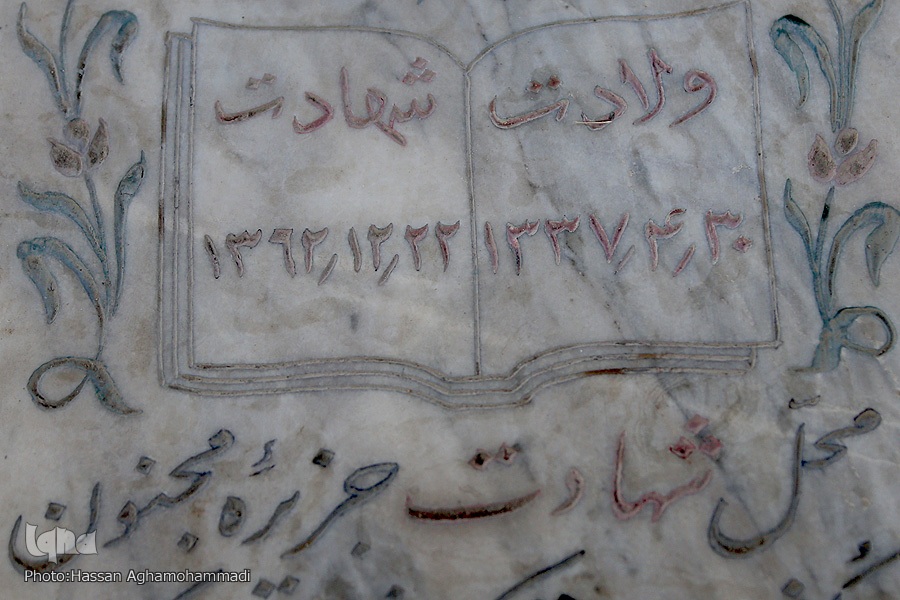 ولادت شهادت
۱۳۳۷٫۴٫۳۰ ۱۳۶۲٫۱۲٫۲۲
محل شهادت جزیرهٔ مجنون
iqna
Photo:Hassan Aghamohammadi